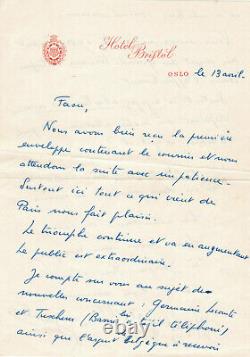 Hotel
Bristol
OSLO le 13 avril.
Fasu,
Nous avons bien reçu la première
enveloppe contenant le courrier et nous
attendons la suite avec impatience.
Surtout ici tout ce qui vient de
Paris nous fait plaisir.
Le triomphe continue et va en augmentant
Le public est extraordinaire.
Je compte sur vous au sujet des
nouvelles concernant : Germaine
et ( lui a téléphoné)
ainsi que l'argent belgique à recevoir